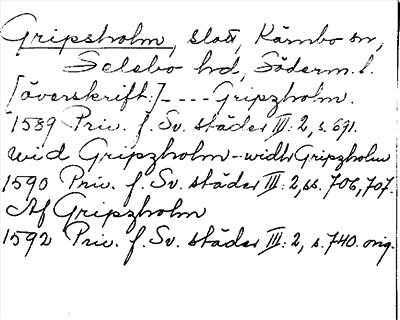 Gripsholm, slott, Kärnbo sn,
Selebo hd, Söderm. l.
[överskrift:]---- Gripzholm.
1589 Priv. f. Sv. städer III: 2, s. 691.
wid Gripzholm -- widh Gripzholm
1590 Priv. f. Sv. städer III: 2, ss. 706, 707.
Af Gripzholm
1592 Priv. f. Sv. städer III: 2, s. 740. orig.